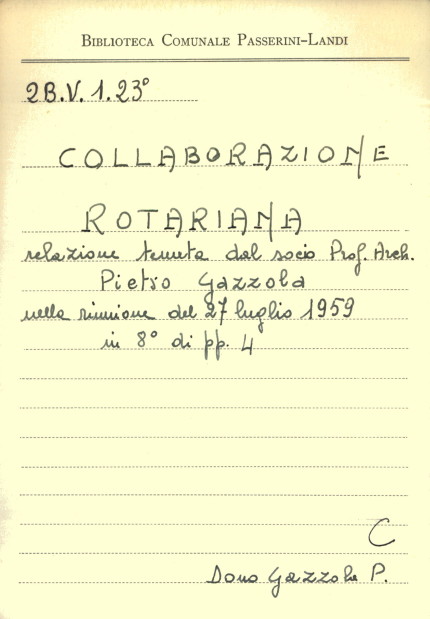 BIBLIOTECA COMUNALE PASSERINI-LANDI
2B.V.1.23°
COLLABORAZIONE
ROTARIANA
relazione tenuta dal socio Prof. Arch.
Pietro Gazzola
nella riunione del 27 luglio 1959
in 8° di pp. 4
C
Dono Gazzola P.